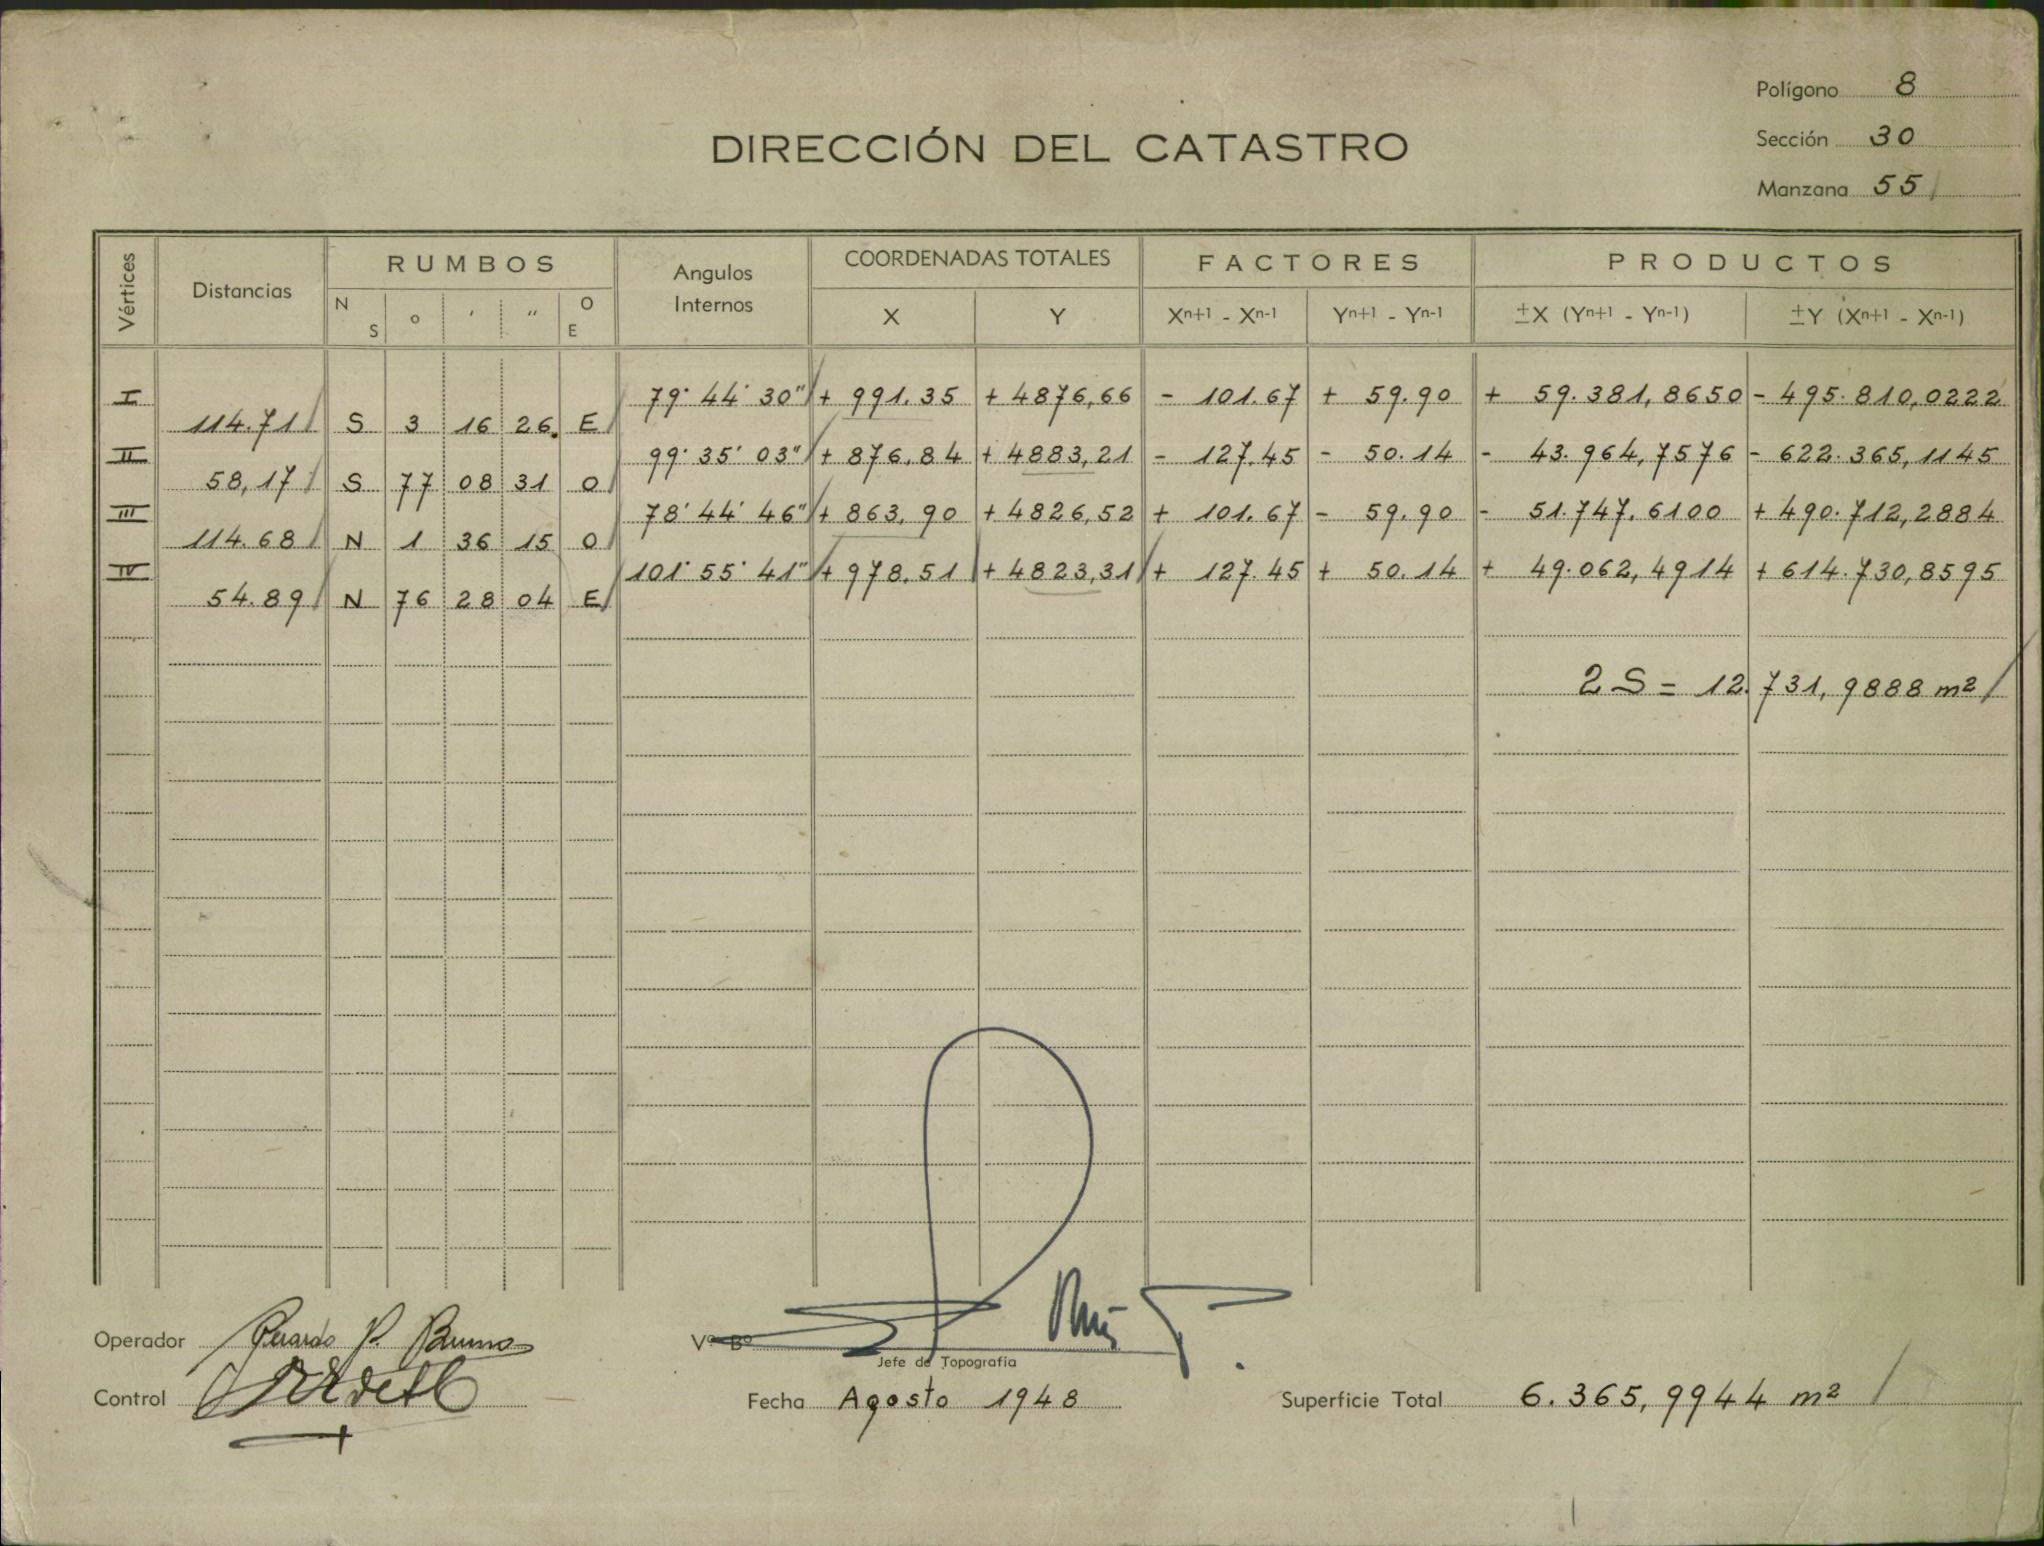 Polígono 8
DIRECCIÓN DEL CATASTRO
Sección 30
Manzana 55
Vértices
Distancias
RUMBOS
N S o ' " O E
Angulos
Internos
COORDENADAS TOTALES
X Y
FACTORES
Xn+1 - Xn-1 Yn+1 - Yn-1
PRODUCTOS
±X (Yn+1 - Yn-1) ±Y (Xn+1 - Xn-1)
I 79° 44' 30" + 991.35 + 4876,66 - 101.67 + 59.90 + 59.381,8650 - 495.810,0222
114.71 S 3 16 26. E
II 99° 35' 03" + 876.84 + 4883,21 - 127.45 - 50.14 - 43.964,7576 - 622.365,1145
58,17 S 77 08 31 O
III 78° 44' 46" + 863,90 + 4826,52 + 101.67 - 59.90 - 51.747.6100 + 490.712,2884
114.68 N 1 36 15 O
IV 101° 55' 41" + 978.51 + 4823,31 + 127.45 + 50.14 + 49.062,4914 + 614.730,8595
54.89 N 76 28 04 E
2 S = 12.731,9888 m2
Operador Gerardo P. Bruno
Vº Bº
Jefe de Topografía
Control
Fecha Agosto 1948
Superficie Total 6.365,9944 m2